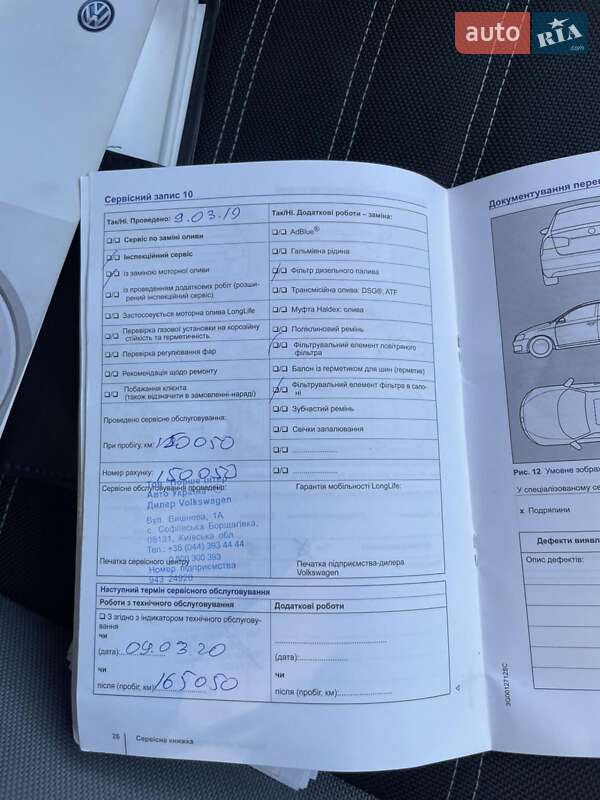 auto RIA .com
Сервісний запис 10
Так/Ні. Проведено: 9.03.19
Сервіс по заміні оливи
Інспекційний сервіс
із заміною моторної оливи
із проведенням додаткових робіт (розши-
рений інспекційний сервіс)
Застосовується моторна олива LongLife
Перевірка газової установки на корозійну
стійкість та герметичність.
Перевірка регулювання фар
Рекомендація щодо ремонту
Побажання клієнта
(також відзначити в замовленні-наряді)
Проведено сервісне обслуговування:
При пробігу, км: 150050
Номер рахунку: 150050
Сервісне обслуговування проведено:
ТОВ "Порше Інтер
Авто Україна"
Дилер Volkswagen
Вул. Вишнева, 1А,
с. Софіївська Борщагівка,
08131, Київська обл.
Тел.: +38 (044) 393 44 44
0 800 300 393
Печатка сервісного центру
Номер підприємства
943 24920
Так/Ні. Додаткові роботи – заміна:
AdBlue®
Гальмівна рідина
Фільтр дизельного палива
Трансмісійна олива: DSG®, ATF
Муфта Haldex: олива
Поліклиновий ремінь
Фільтрувальний елемент повітряного
фільтра
Балон із герметиком для шин (герметик)
Фільтрувальний елемент фільтра в сало-
ні
Зубчатий ремінь
Свічки запалювання
Гарантія мобільності LongLife:
Печатка підприємства-дилера
Volkswagen
Наступний термін сервісного обслуговування
Роботи з технічного обслуговування
З згідно з індикатором технічного обслугову-
вання
чи
(дата): 09.03.20
чи
після (пробіг, км): 165050
Додаткові роботи
(дата):
чи
після (пробіг, км):
26
Сервісна книжка
Документування пере
Рис. 12 Умовне зображ
У спеціалізованому се
x Подряпини
Дефекти виявл
Опис дефектів:
3G0012712SC